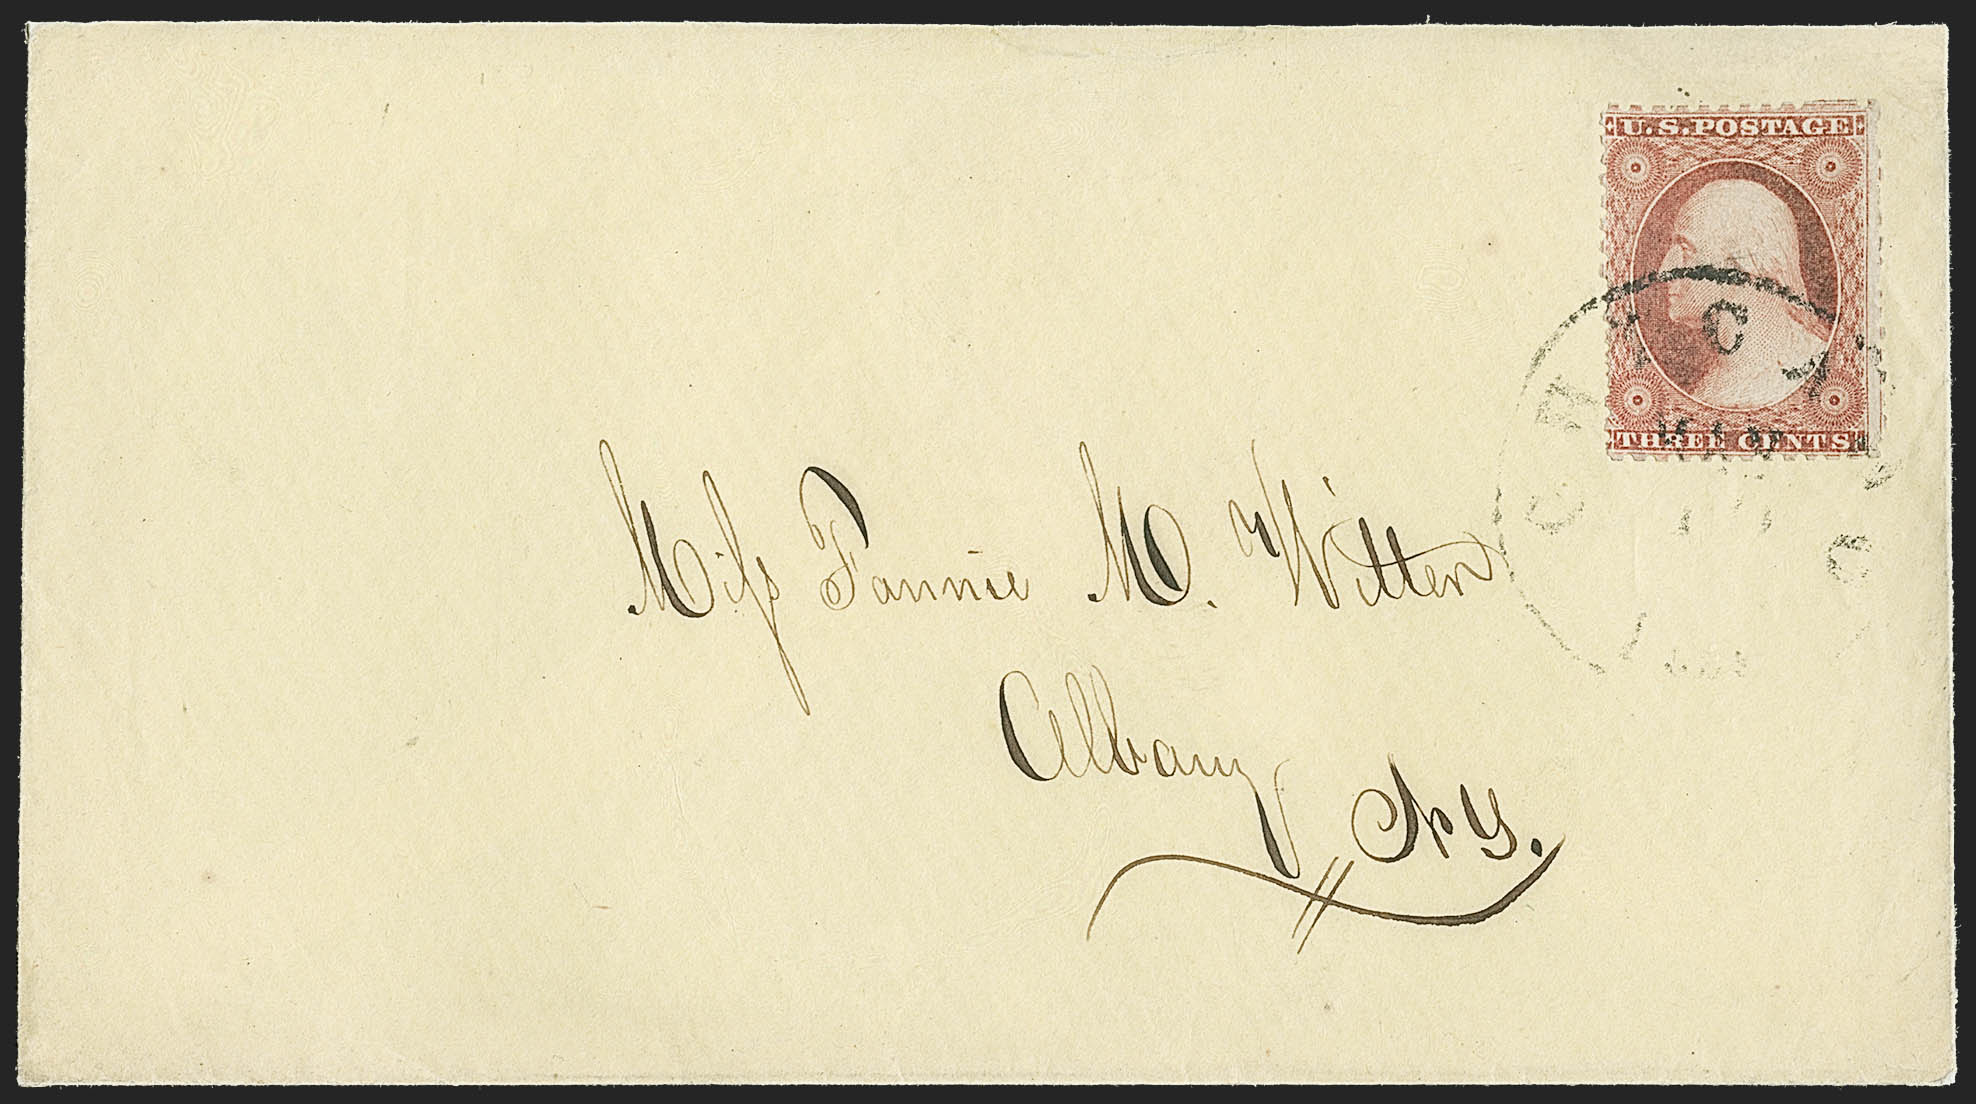 U.S. POSTAGE
THREE CENTS
CHICAGO
Miss Fannie M. Witten
Albany
N Y.